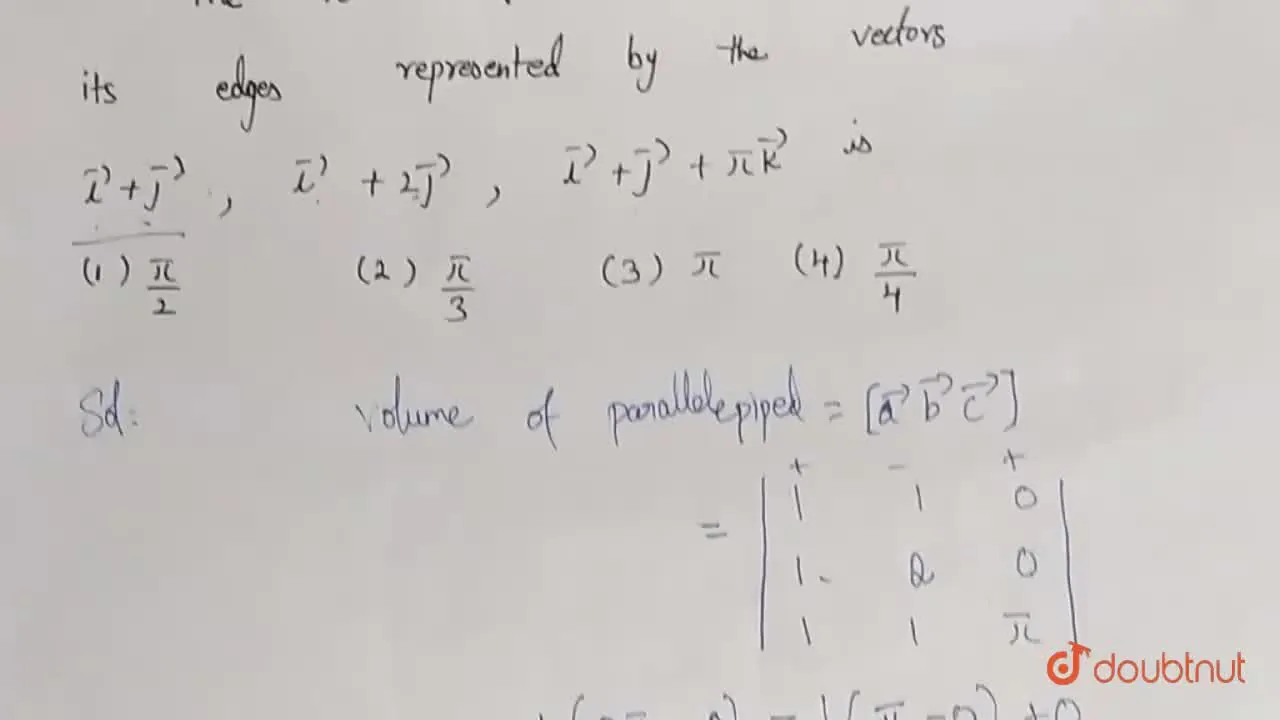 its edges represented by the vectors
i⃗ + j⃗ , i⃗ + 2j⃗ , i⃗ + j⃗ + πk⃗ is
(1) π/2 (2) π/3 (3) π (4) π/4
Sol: Volume of parallelepiped = [a⃗ b⃗ c⃗]
+ - +
1 1 0
= 1 2 0
1 1 π
doubtnut